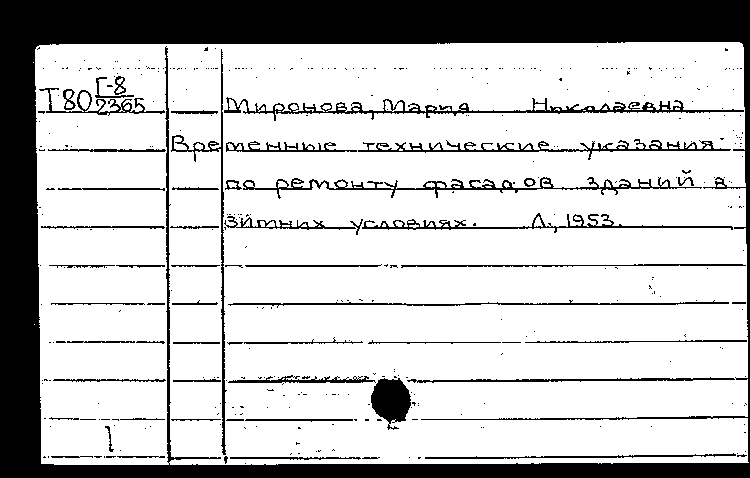 Т80 Г-8
2365
Миронова, Мария Николаевна
Временные технические указания
по ремонту фасадов зданий в
зимних условиях. Л., 1953.